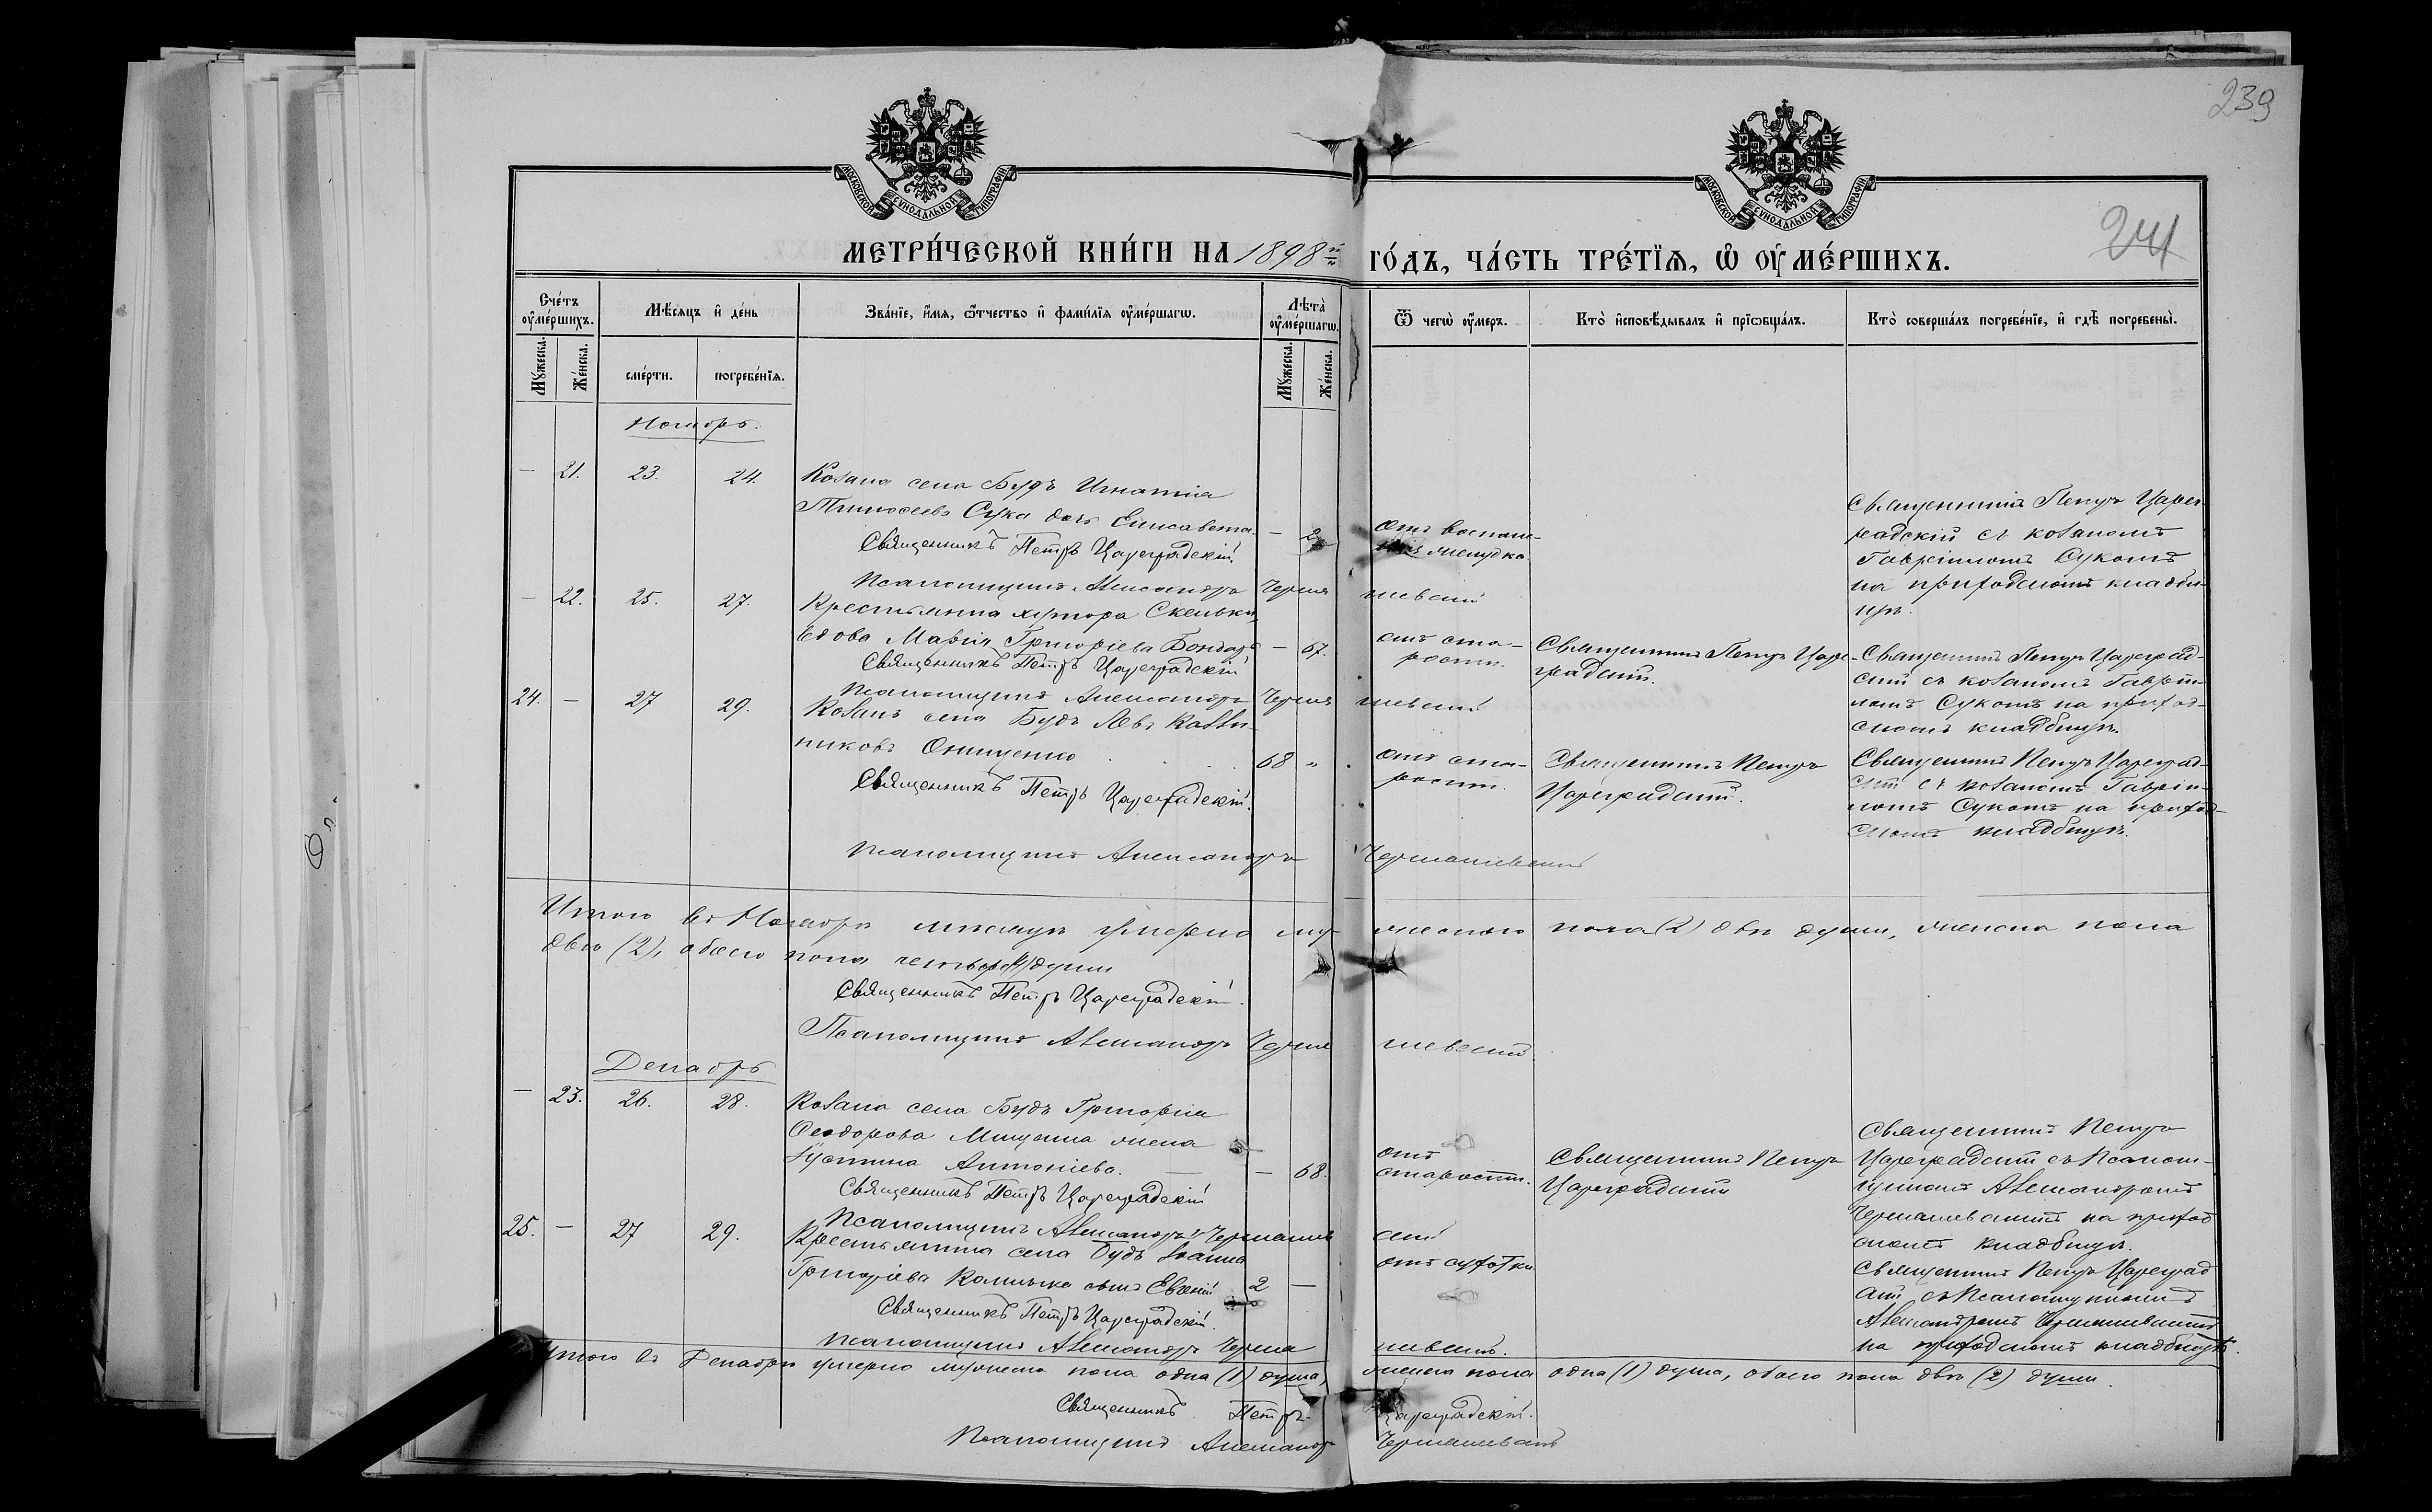 239
241
МОСКОВСКОЙ СѴНОДАЛЬНОЙ ТИПОГРАФІИ
МОСКОВСКОЙ СѴНОДАЛЬНОЙ ТИПОГРАФІИ
МЕТРИ́ЧЕСКОЙ КНИ́ГИ НА 1898 й ГО́ДЪ, ЧА́СТЬ ТРЕ́ТЇѦ, Ѡ ОУМЕ́РШИХЪ.
Сче́тъ оуме́ршихъ.
Мѣ́сяцъ и де́нь
Зва́нїе, и́мя, ѿтчество и фами́лїя оуме́ршагѡ.
Лѣта̀ оуме́ршагѡ.
Ѿ чегѡ̀ оу́меръ.
Кто̀ исповѣ́дывалъ и прїѡбща́лъ.
Кто̀ соверша́лъ погребе́нїе, и гдѣ̀ погребены̀.
Мꙋ́жеска.
Же́нска.
сме́рти.
погребе́нїя.
Мꙋ́жеска.
Же́нска.
Ноябрь.
— 21. 23. 24. Козака села Будъ Игнатія
Тимоѳеева Сука дочь Елисавета — 2
Священникъ Петръ Цареградскій.
Псаломщикъ Александръ Черня
отъ воспале-
желудка
шевскій
Священникъ Петръ Царег-
радскій съ козакомъ
Гавріиломъ Сукомъ
на приходскомъ кладби-
щѣ.
— 22. 25. 27. Крестьянка хутора Скельки,
вдова Марія Григоріева Бондарь — 67.
Священникъ Петръ Цареградскій
Псаломщикъ Александръ Черня
отъ ста-
рости.
шевскій
Священникъ Петръ Царе-
градскій.
Священникъ Петръ Цареград-
скій съ козакомъ Гавріи-
ломъ Сукомъ на приход-
скомъ кладбищѣ.
24. — 27 29. Козакъ села Будъ Левъ
никовъ Онищенко 68 "
Священникъ Петръ Цареградскій.
Псаломщикъ Александръ Чернышевскій
отъ ста-
рости.
Священникъ Петръ
Цареградскій.
Священникъ Петръ Цареград-
скій съ козакомъ Гавріи-
ломъ Сукомъ на приход-
скомъ кладбищѣ.
Итого въ Ноябрѣ мѣсяцѣ умерло мужескаго пола (2) двѣ души, женска пола
двѣ (2), обоего пола четыре (4) души
Священникъ Петръ Цареградскій.
Псаломщикъ Александръ Черня шевскій
Декабрь
— 23. 26. 28. Козака села Будъ Григорія
Ѳеодорова Мищенка жена
Іустина Антоніева. — — 68.
Священникъ Петръ Цареградскій
Псаломщикъ Александръ Черняшев
отъ
старости.
скій
Священникъ Петръ
Цареградскій
Священникъ Петръ
Цареградскій съ Псалом-
щикомъ Александромъ
Черняшевскимъ на приход
скомъ кладбищѣ.
25. — 27 29. Крестьянина села Будъ Іоанна
Григоріева сынъ Евгеній 2 —
Священникъ Петръ Цареградскій.
Псаломщикъ Александръ Черня
отъ сухотки
шевскій.
Священникъ Петръ Цареград
скій съ Псаломщикомъ
Александромъ Черняшевскимъ
на приходскомъ кладбищѣ.
Итого въ Декабрѣ умерло мужеска пола одна (1) душа, женска пола одна (1) душа, обоего пола двѣ (2) души.
Священникъ Петръ Цареградскій.
Псаломщикъ Александръ Черняшевскій